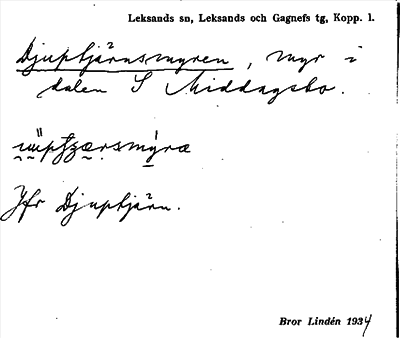 Leksands sn, Leksands och Gagnefs tg, Kopp. l.
Djuptjärnsmyren, myr i
dalen S Middagsbo.
Jfr Djuptjärn.
Bror Lindén 1934